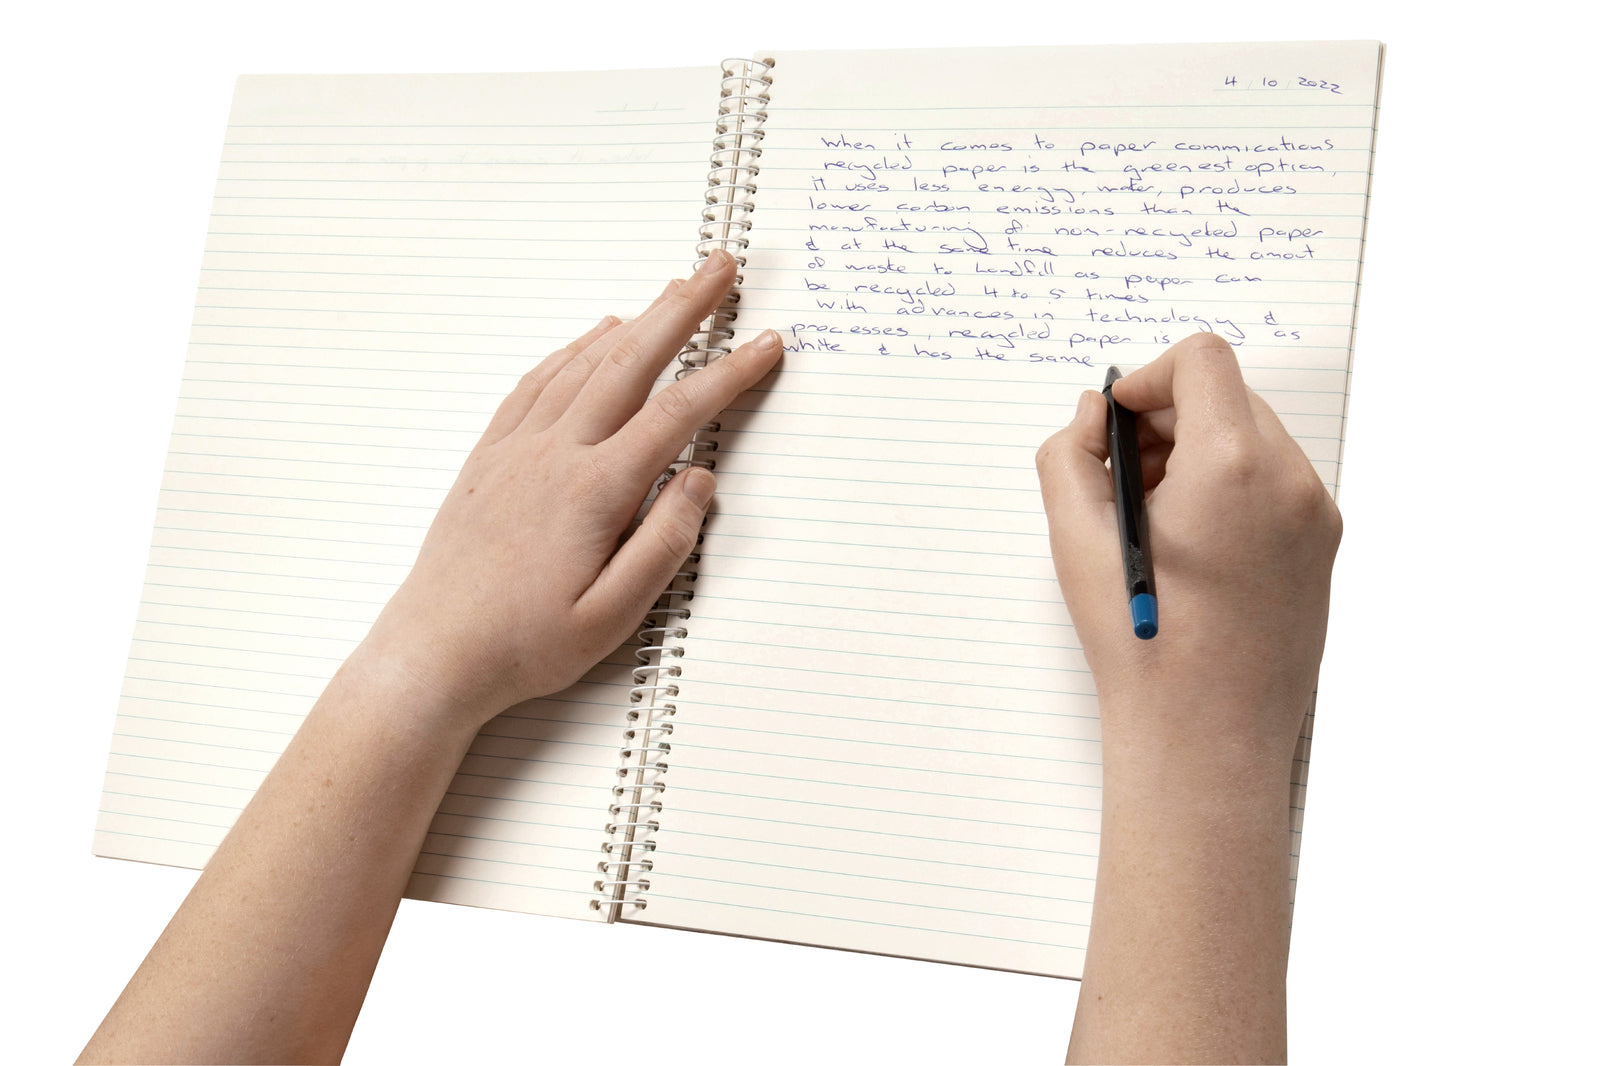 4 / 10 / 2022
When it comes to paper commications
recycled paper is the greenest option,
it uses less energy, water, produces
lower carbon emissions than the
manufacturing of non-recycled paper
& at the same time reduces the amout
of waste to landfill as paper can
be recycled 4 to 5 times
With advances in technology &
processes, recycled paper is as
white & has the same